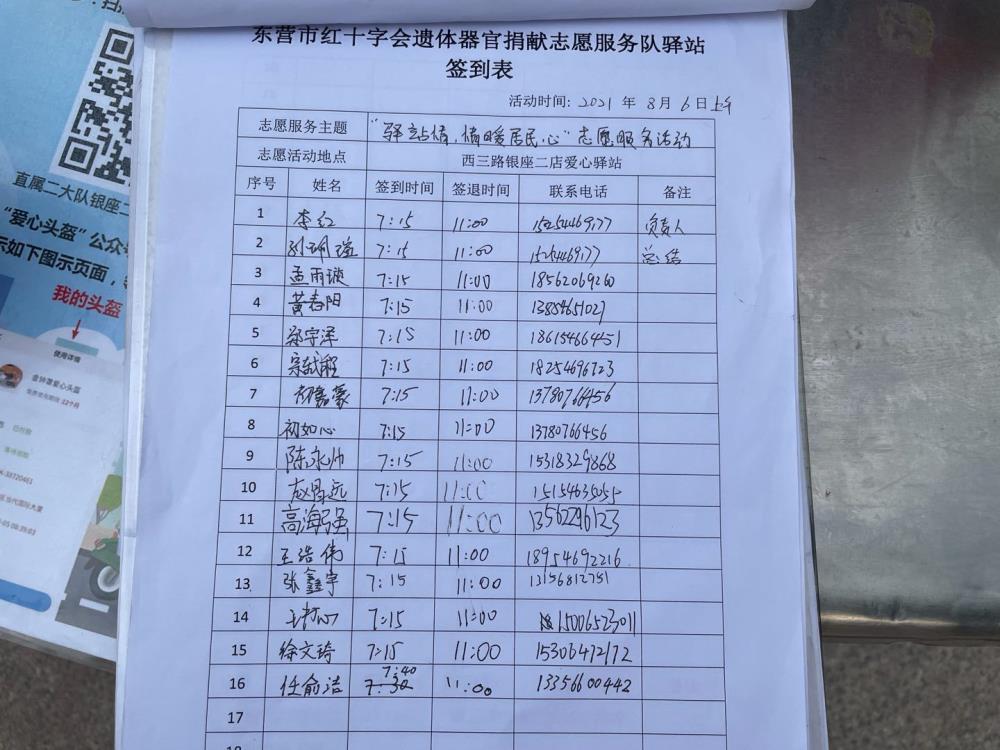 直属二大队银座二
“爱心头盔”公众号
示如下图示页面，
我的头盔
使用详情
12个月
东营市红十字会遗体器官捐献志愿服务队驿站
签到表
活动时间：2021 年 8 月 6 日上午
志愿服务主题 “驿站情，情暖居民心”志愿服务活动
志愿活动地点 西三路银座二店爱心驿站
序号 姓名 签到时间 签退时间 联系电话 备注
1 李红 7:15 11:00 15254469177 负责人
2 孙珮瑶 7:15 11:00 15254469177 总结
3 孟雨璇 7:15 11:00 18562069260
4 黄春阳 7:15 11:00 13854651027
5 郑宇泽 7:15 11:00 18615466451
6 7:15 11:00 18254696723
7 胡嘉豪 7:15 11:00 13780766456
8 初如心 7:15 11:00 13780766456
9 陈永帅 7:15 11:00 15318329868
10 赵昌远 7:15 11:00 15154635055
11 高海强 7:15 11:00 13562296123
12 王浩伟 7:15 11:00 18954692216
13 张鑫宇 7:15 11:00
14 7:15 11:00 15006523011
15 徐文琦 7:15 11:00 15306472172
16 任俞洁 7:30 7:40 11:00 13356600442
17
18